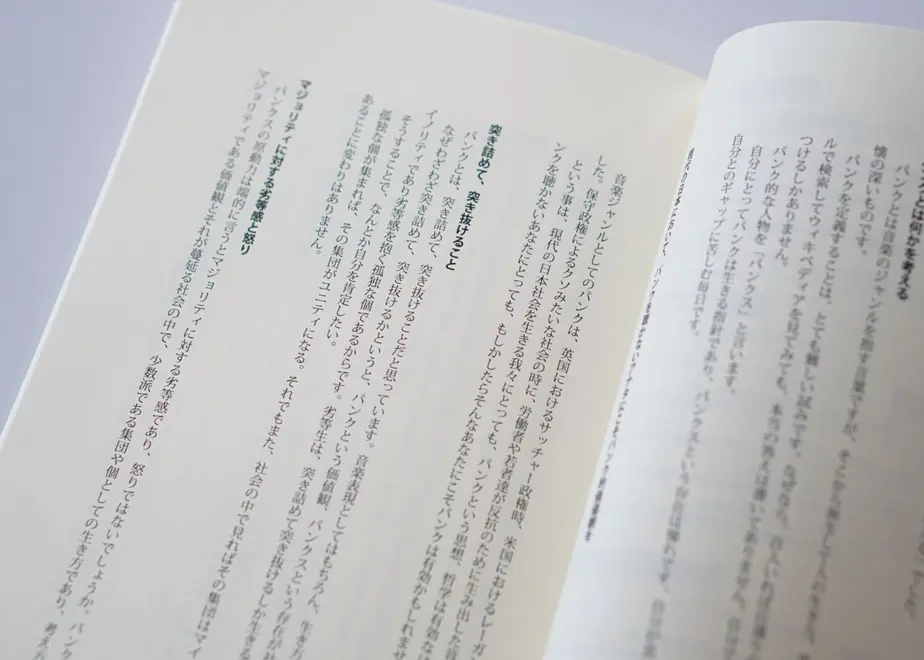 何かを考える
パンクとは音楽のジャンルを指す言葉ですが、そこから派生して人の生き
懐の深いものです。
パンクを定義することは、とても難しい試みです。なぜなら、
ルで検索してウィキペディアを見てみても、本当の答えは書いてありません。自分で
つけるしかありません。
パンク的な人物を「パンクス」と言います。
自分にとってパンクは生きる指針であり、パンクスという存在は憧れです。
自分とのギャップに苦しむ毎日です。
音楽ジャンルとしてのパンクは、英国におけるサッチャー政権時、米国におけるレーガ
した。保守政権によるクソみたいな社会の時に、労働者や若者達が反抗のために生み出した音
という事は、現代の日本社会を生きる我々にとっても、パンクという思想、哲学は有効な
ンクを聴かないあなたにとっても、もしかしたらそんなあなたにこそパンクは有効かもしれませ
突き詰めて、突き抜けること
パンクとは、突き詰めて、突き抜けることだと思っています。音楽表現としてはもちろん、生き方
なぜわざわざ突き詰めて、突き抜けるかというと、パンクという価値観、パンクスという存在が社
イノリティであり劣等感を抱く孤独な個であるからです。劣等生は、突き詰めて突き抜けるしか生きる
そうすることで、なんとか自分を肯定したい。
孤独な個が集まれば、その集団がユニティになる。それでもまた、社会の中で見ればその集団はマイ
あることに変わりはありません。
マジョリティに対する劣等感と怒り
パンクスの原動力は端的に言うとマジョリティに対する劣等感であり、怒りではないでしょうか。パンク
マジョリティである価値観とそれが蔓延る社会の中で、少数派である集団や個としての生き方であり、考え方